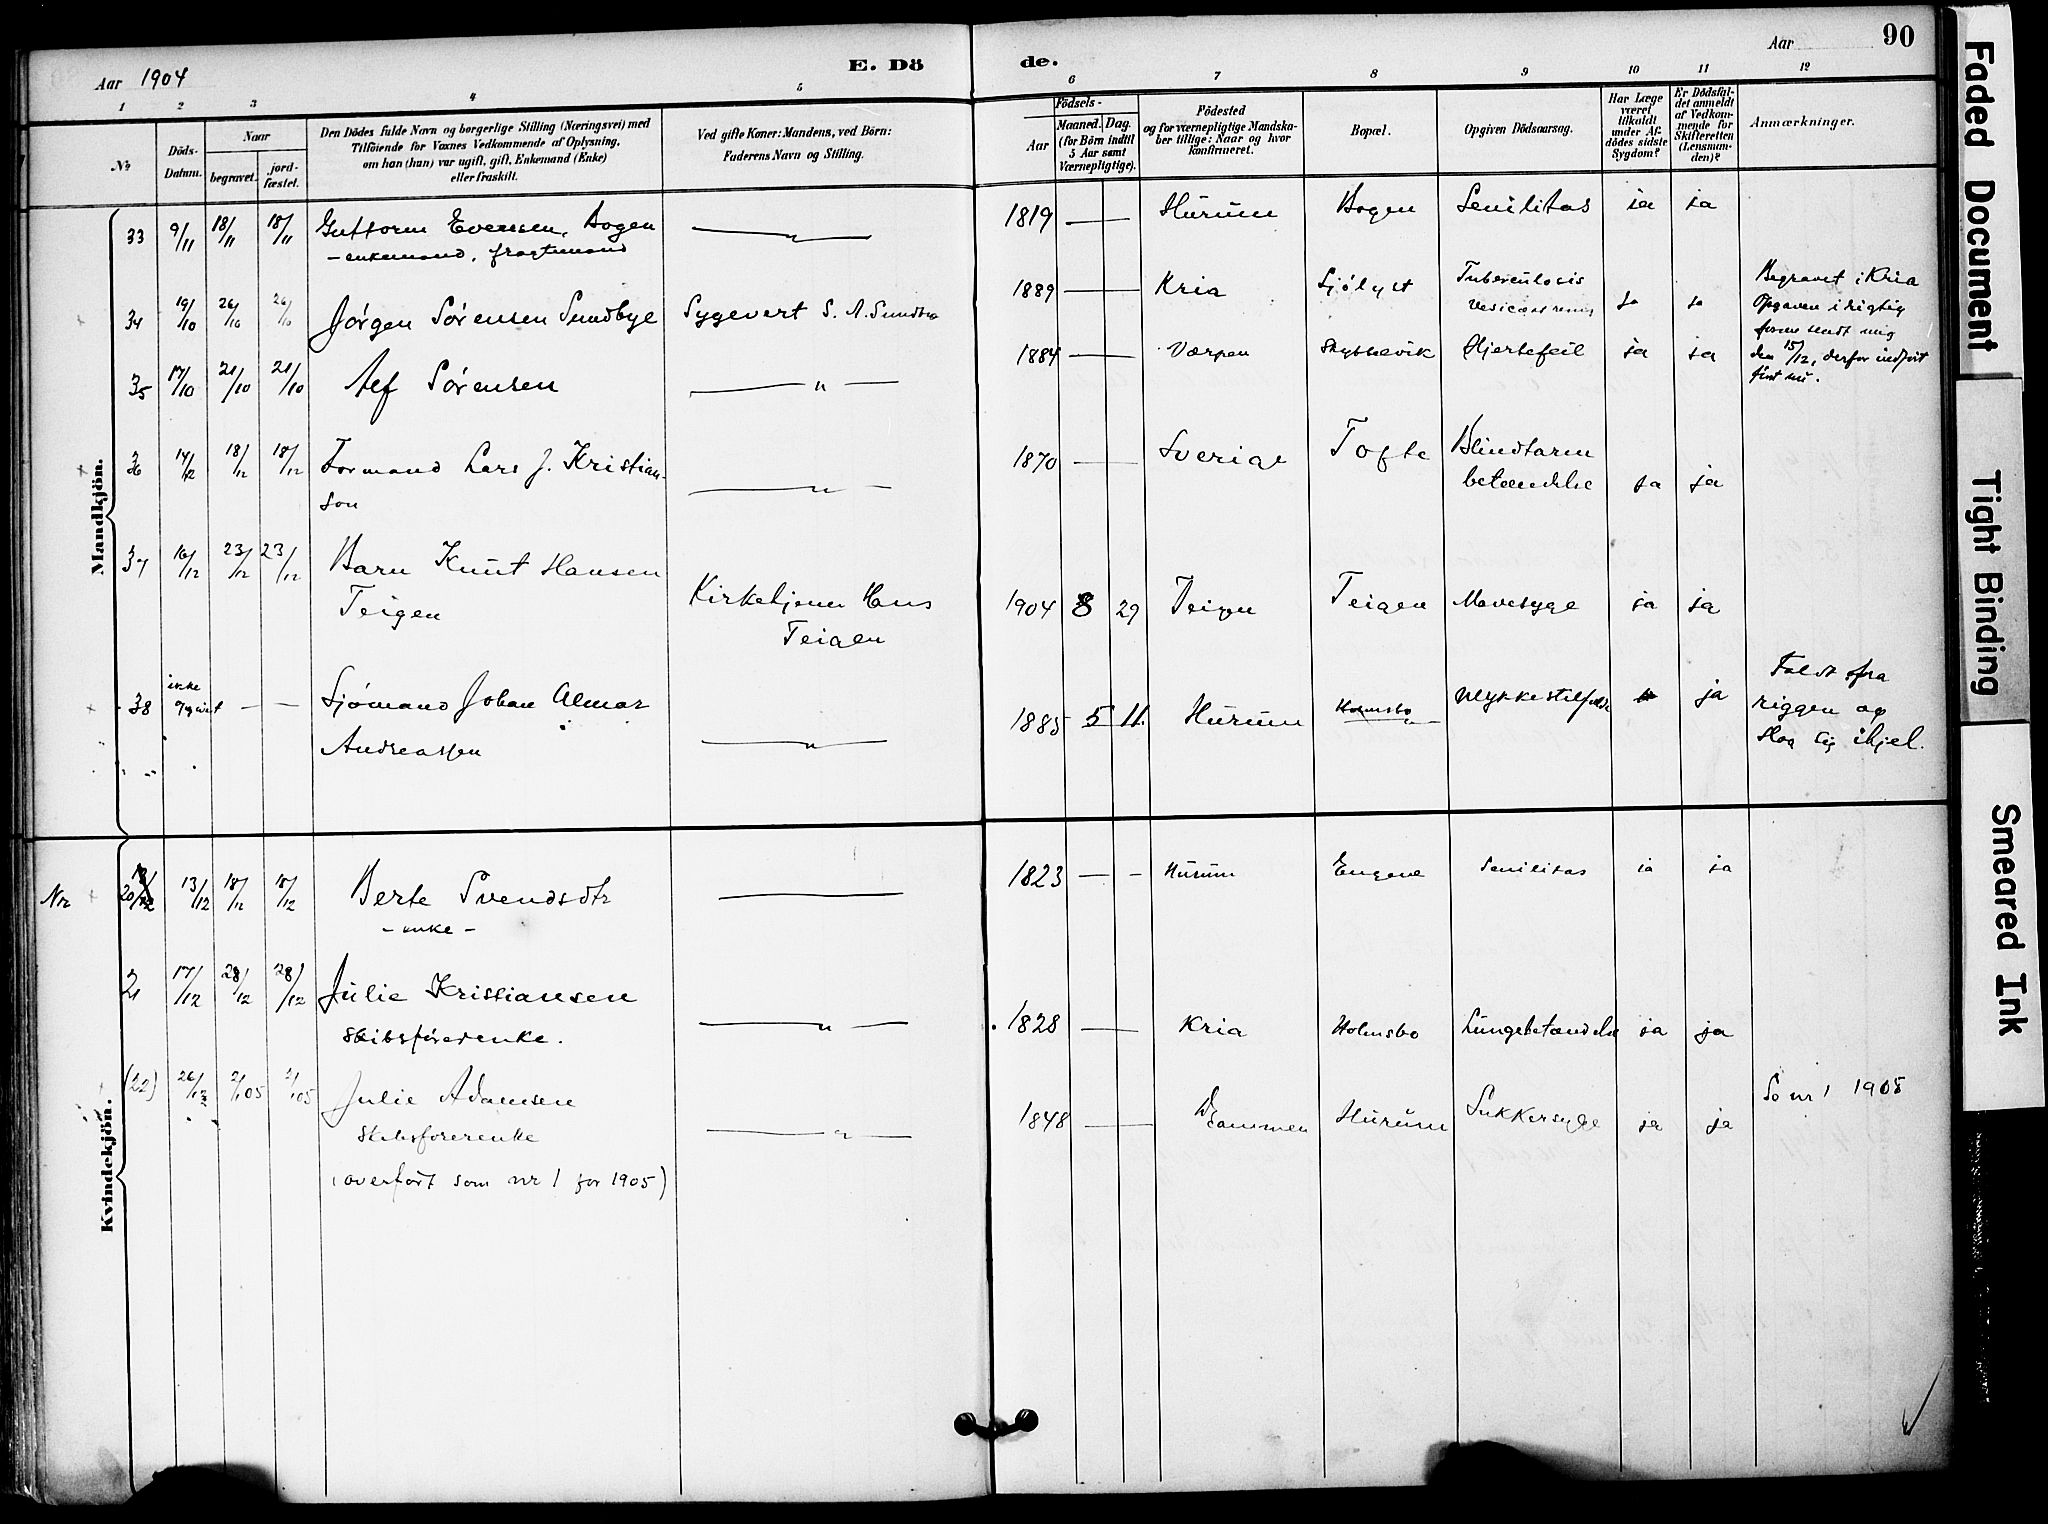 Aar 1904
E. Dö
de.
Aar
90
1 2 3 4 5 6 7 8 9 10 11 12
№
Döds-
Datum.
Naar
begravet.
jord-
fæstet.
Den Dödes fulde Navn og borgerlige Stilling (Næringsvei) med
Tilföiende for Voxnes Vedkommende af Oplysning,
om han (hun) var ugift, gift, Enkemand (Enke)
eller fraskilt.
Ved gifte Koner: Mandens, ved Börn:
Faderens Navn og Stilling.
Födsels-
Aar
Maaned. Dag.
(for Börn indtil
5 Aar samt
Værnepligtige).
Födested
og for værnepligtige Mandska-
ber tillige: Naar og hvor
konfirmeret.
Bopæl.
Opgiven Dödsaarsag.
Har Læge
været
tilkaldt
under Af-
dödes sidste
Sygdom?
Er Dödsfal-
det anmeldt
af Vedkom-
mende for
Skifteretten
(Lensman-
den)?
Anmærkninger.
Mandkjön.
33 9/11 18/11 18/11 Guttorm Evensen, Bogen — " — 1819 — Hurum Bogen Senilitas ja ja
- enkemand, fragtemand
34 19/10 26/10 26/10 Jørgen Sørensen Sundbye Sygevert S. A. Sundbye 1889 — Kria Sjølyst Tuberculosis ja ja
Begravet i Kria
Opgaven i rigtig
form sendt mig
den 15/12, derfor indført
først nu.
35 17/10 21/10 21/10 Alf Sørensen — " — 1884 — Værpen Hjertefeil ja ja
36 14/12 18/12 18/12 Formand Lars J. Kristian-
son — " — 1870 — Sverige Tofte Blindtarm
betændelse ja ja
37 16/12 23/12 23/12 Barn Knut Hansen
Teigen
Kirketjener Hans
Teigen
1904 8 29 Teigen Teigen Mavesyge ja ja
38 ikke
opgivet — — Sjømand Johan Almar
Andreassen — " — 1885 5 11. Hurum Holmsbo Ulykkestilfælde ja
Faldt fra
riggen og
slog sig ihjel.
Kvindekjön.
Nr 20 13/12 18/12 18/12 Berte Svendsdtr — 1823 — - Hurum Engene Senilitas ja ja
- enke -
21 17/12 28/12 28/12 Julie Kristiansen
Skibsførerenke. — " — 1828 — Kria Holmsbo Lungebetændelse ja ja
(22) 26/12 2/1 05 2/1 05 Julie Adamsen
Skibsførerenke — " — 1848 — Drammen Hurum Sukkersyge ja ja
(overført som nr 1 for 1905)
Se nr 1 1905
Faded Document
Tight Binding
Smeared Ink